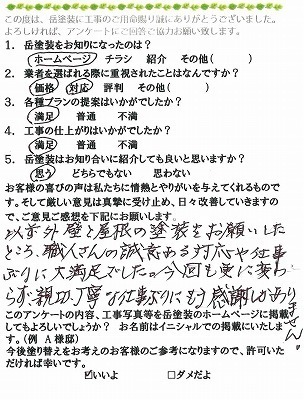 この度は、岳塗装に工事のご用命賜り誠にありがとうございました。
よろしければ、アンケートにご回答ご協力お願い致します。
1. 岳塗装をお知りになったのは？
ホームページ チラシ 紹介 その他( )
2. 業者を選ばれる際に重視されたことはなんですか？
価格 対応 評判 その他( )
3. 各種プランの提案はいかがでしたか？
満足 普通 不満
4. 工事の仕上がりはいかがでしたか？
満足 普通 不満
5. 岳塗装はお知り合いに紹介しても良いと思いますか？
思う どちらでもない 思わない
お客様の喜びの声は私たちに情熱とやりがいを与えてくれるものです。
そして厳しい意見は真摯に受け止め、日々改善していきますので、ご意見ご感想を下記にお願いします。
以前外壁と屋根の塗装をお願いした
ところ、職人さんの誠意ある対応や仕事
ぶりに大満足でした。今回も更に変わ
らず親切、丁寧な仕事ぶりにもう感謝しかありません。
このアンケートの内容、工事写真等を岳塗装のホームページに掲載
してもよろしいでしょうか？ お名前はイニシャルでの掲載にいたしま
す。(例 A様邸)
今後塗り替えをお考えのお客様のご参考になりますので、許可いた
だければ幸いです。
☑いいよ □ダメだよ